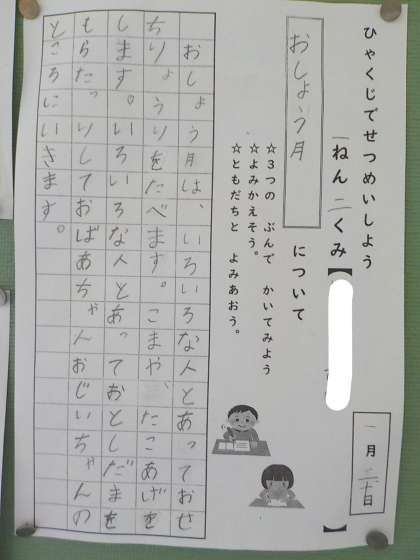 ひゃくじでせつめいしよう
一ねん 二くみ【 】
おしょう月 について
☆３つの ぶんで かいてみよう
☆よみかえそう。
☆ともだちと よみあおう。
一月二十日
おしょう月は、いろいろな人とあっておせ
ちりょうりをたべます。こまや、たこあげを
します。いろいろな人とあっておとしだまを
もらったりしておばあちゃんおじいちゃんの
ところにいきます。